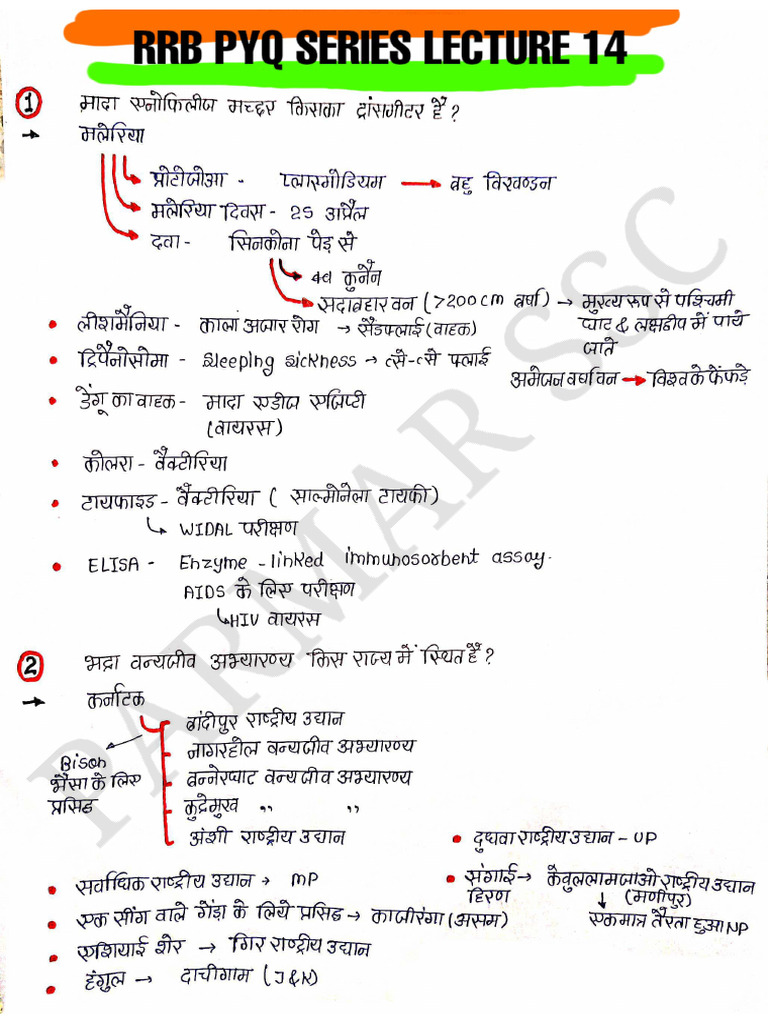 RRB PYQ SERIES LECTURE 14
1 मादा एनोफिलीज मच्छर किसका ट्रांसमीटर है?
→ मलेरिया
प्रोटोजोआ - प्लास्मोडियम → बहु विखण्डन
मलेरिया दिवस - 25 अप्रैल
दवा - सिनकोना पेड़ से
कुनैन
सदाबहार वन (>200cm वर्षा) → मुख्य रूप से पश्चिमी
घाट & लक्षद्वीप में पाये
जाते
• लीशमैनिया - काला अजार रोग → सैंडफ्लाई (वाहक)
• ट्रिपैनोसोमा - Sleeping sickness → त्से-त्से फ्लाई
अमेजन वर्षावन → विश्व के फेंफड़े
• डेंगू का वाहक - मादा एडीज एजिप्टी
(वायरस)
• कोलरा - बैक्टीरिया
• टायफाइड - बैक्टीरिया ( साल्मोनेला टायफी)
↳ WIDAL परीक्षण
• ELISA - Enzyme - linked immunosorbent assay.
AIDS के लिए परीक्षण
↳ HIV वायरस
2 भद्रा वन्यजीव अभ्यारण्य किस राज्य में स्थित है?
→ कर्नाटक
बांदीपुर राष्ट्रीय उद्यान
नागरहोल वन्यजीव अभ्यारण्य
Bison
भैंसा के लिए
प्रसिद्ध
बन्नेरघाट वन्यजीव अभ्यारण्य
कुद्रेमुख ,, ,,
अंशी राष्ट्रीय उद्यान
• दुधवा राष्ट्रीय उद्यान - UP
• सर्वाधिक राष्ट्रीय उद्यान → MP
• संगाई → केबुललामजाओ राष्ट्रीय उद्यान
हिरण (मणीपुर)
↓
एकमात्र तैरता हुआ NP
• एक सींग वाले गेंडा के लिये प्रसिद्ध → काजीरंगा (असम)
• एशियाई शेर → गिर राष्ट्रीय उद्यान
• हंगुल → दाचीगाम (J&K)
PARMAR SSC